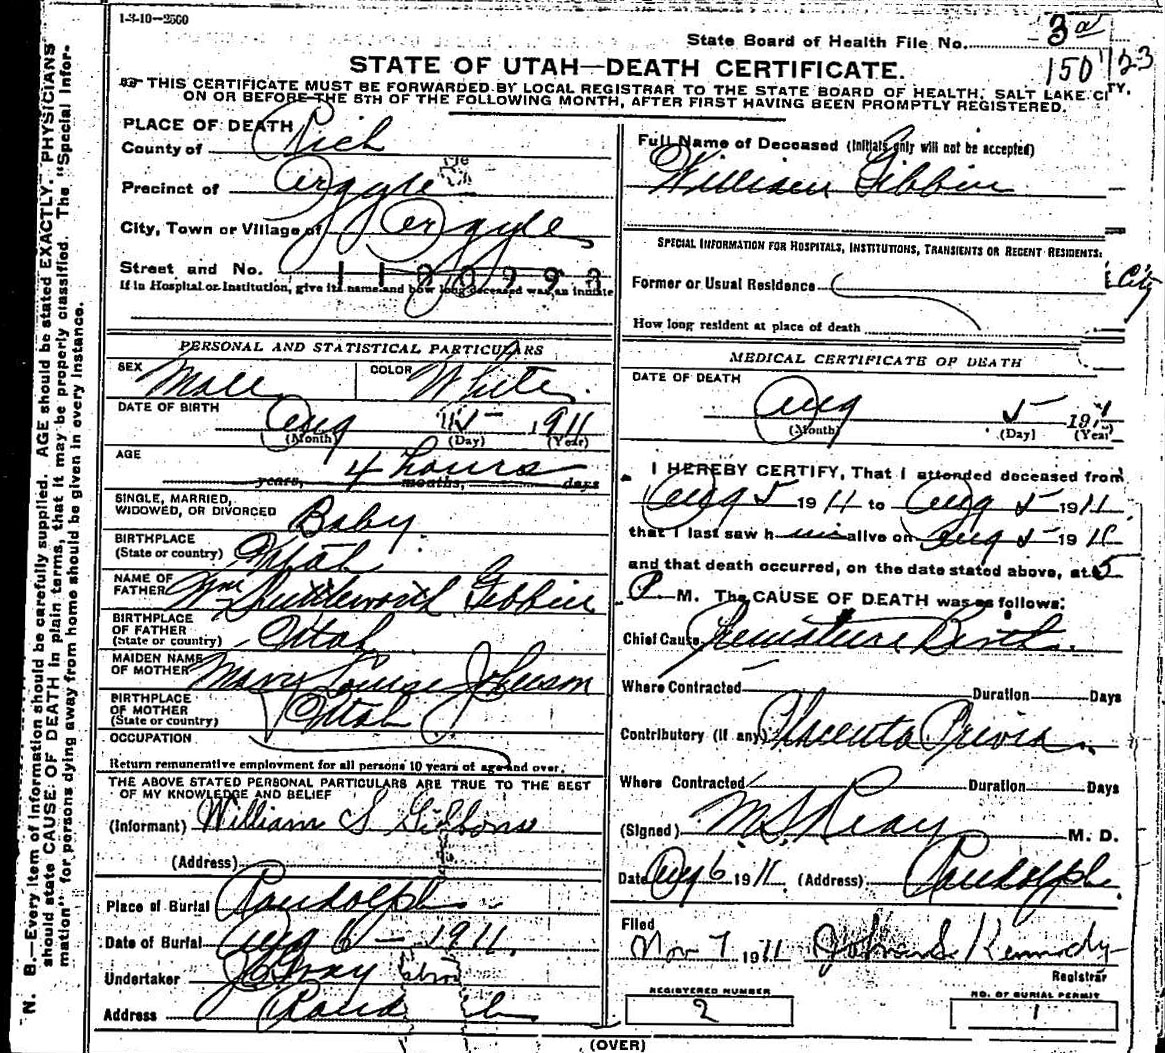 1-3-10—2560
State Board of Health File No. 3 a
150 123
STATE OF UTAH—DEATH CERTIFICATE.
THIS CERTIFICATE MUST BE FORWARDED BY LOCAL REGISTRAR TO THE STATE BOARD OF HEALTH, SALT LAKE CITY,
ON OR BEFORE THE 5TH OF THE FOLLOWING MONTH, AFTER FIRST HAVING BEEN PROMPTLY REGISTERED.
PLACE OF DEATH
County of Rich
Precinct of Argyle
City, Town or Village of Argyle
Street and No.
If in Hospital or Institution, give its name and how long deceased was an inmate
PERSONAL AND STATISTICAL PARTICULARS
SEX Male COLOR White
DATE OF BIRTH Aug 5 1911
(Month) (Day) (Year)
AGE 4 hours
years, months, days
SINGLE, MARRIED,
WIDOWED, OR DIVORCED Baby
BIRTHPLACE
(State or country) Utah
NAME OF
FATHER Wm Shuttleworth Gibbin
BIRTHPLACE
OF FATHER
(State or country) Utah
MAIDEN NAME
OF MOTHER Mary Louise Johnson
BIRTHPLACE
OF MOTHER
(State or country) Utah
OCCUPATION
Return remunerative employment for all persons 10 years of age and over.
THE ABOVE STATED PERSONAL PARTICULARS ARE TRUE TO THE BEST
OF MY KNOWLEDGE AND BELIEF
(Informant) William S Gibbons
(Address)
Place of Burial Randolph
Date of Burial Aug 6 — 1911.
Undertaker Gray
Address Rand
Full Name of Deceased (Initials only will not be accepted)
William Gibbin
SPECIAL INFORMATION FOR HOSPITALS, INSTITUTIONS, TRANSIENTS OR RECENT RESIDENTS:
Former or Usual Residence
City
How long resident at place of death
MEDICAL CERTIFICATE OF DEATH
DATE OF DEATH
Aug 5 1911
(Month) (Day) (Year)
I HEREBY CERTIFY, That I attended deceased from
Aug 5 1911 to Aug 5 1911
that I last saw him alive on Aug 5 1911
and that death occurred, on the date stated above, at 5
P M. The CAUSE OF DEATH was as follows:
Chief Cause Premature Birth.
Where Contracted Duration Days
Contributory (if any) Placenta Privia
Where Contracted Duration Days
(Signed) M. S. Reay M. D.
Date Aug 6 1911. (Address) Randolph.
Filed
Nov 7 1911 John S. Kennedy
Registrar
REGISTERED NUMBER
2
NO. OF BURIAL PERMIT
1
(OVER)
N. B.—Every item of information should be carefully supplied. AGE should be stated EXACTLY. PHYSICIANS
should state CAUSE OF DEATH in plain terms, that it may be properly classified. The "Special Infor-
mation" for persons dying away from home should be given in every instance.